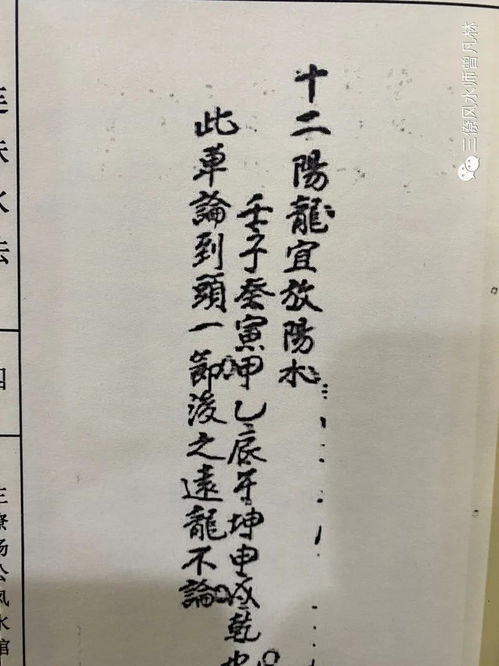 三僚风水师曾凡林
十二陽龍宜放陽水
壬子癸寅甲乙辰午坤申戌乾也
此单論到頭一節後之遠龍不論
四
三僚杨公风水馆